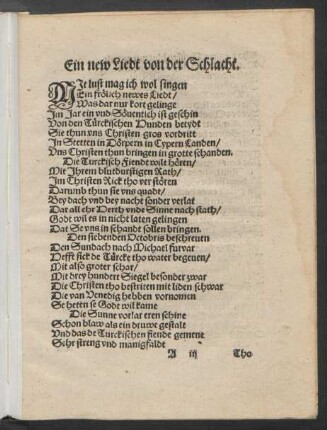 Ein new Liedt von der Schlacht.
MIt lust mag ich wol singen
Ein frölich newes Liedt/
Was dat nur kort gelinge
Im Jar ein vnd Söuentich ist geschin
Von den Türckischen Hunden betydt
Sie thun vns Christen gros vordritt
In Stetten in Dörpern in Cypern Landen/
Vns Christen thun bringen in grotte schanden.
Die Turckisch Fiendt wilt hören/
Mit Ihrem blutdurstigen Rath/
Im Christen Rick tho ver stören
Darumb thun sie vns quadt/
Bey dach vnd bey nacht sonder verlat
Dat all ehr Herth ynde Sinne nach stath/
Godt wil es in nicht laten gelingen
Dat Se vns in schandt sollen bringen.
Den siebenden Octobris beschreuen
Den Sundach nach Michael furwar
Hefft sick de Türcke tho water begeuen/
Mit also groter schar/
Mit drey hundert Siegel besonder zwar
Die Christen tho bestriren mit liden schwar
Die van Venedig hebben vornomen
Se heten se Gode wil kame
Die Sunne vorlar eren schine
Schon blaw als ein druwe gestalt
Vnd das de Turckischen fiende gemene
Sehr streng vnd manigfaldt
A iij Tho